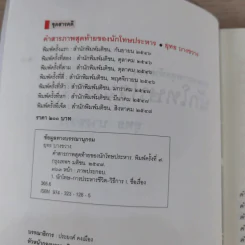 ชุดสารคดี
คำสารภาพสุดท้ายของนักโทษประหาร • ยุทธ บางขวาง
พิมพ์ครั้งแรก : สำนักพิมพ์มติชน, กันยายน ๒๕๔๖
พิมพ์ครั้งที่สอง : สำนักพิมพ์มติชน, ตุลาคม ๒๕๔๖
พิมพ์ครั้งที่สาม : สำนักพิมพ์มติชน, ตุลาคม ๒๕๔๖
พิมพ์ครั้งที่สี่ : สำนักพิมพ์มติชน, พฤศจิกายน ๒๕๔๖
พิมพ์ครั้งที่ห้า : สำนักพิมพ์มติชน, มกราคม ๒๕๔๗
พิมพ์ครั้งที่หก : สำนักพิมพ์มติชน, มีนาคม ๒๕๔๗
สำนักพิมพ์มติชน, สิงหาคม ๒๕๔๗
ราคา ๒๐๐ บาท
ข้อมูลทางบรรณานุกรม
ยุทธ บางขวาง
คำสารภาพสุดท้ายของนักโทษประหาร. พิมพ์ครั้งที่
กรุงเทพฯ : มติชน, ๒๕๔๗.
หน้า : ภาพประกอบ
1. นักโทษ-การประหารชีวิต-วิธีการ I. ชื่อเรื่อง
ISBN 974 - 323 - 128 - 6
บรรณาธิการ : ประยงค์ คงเมือง